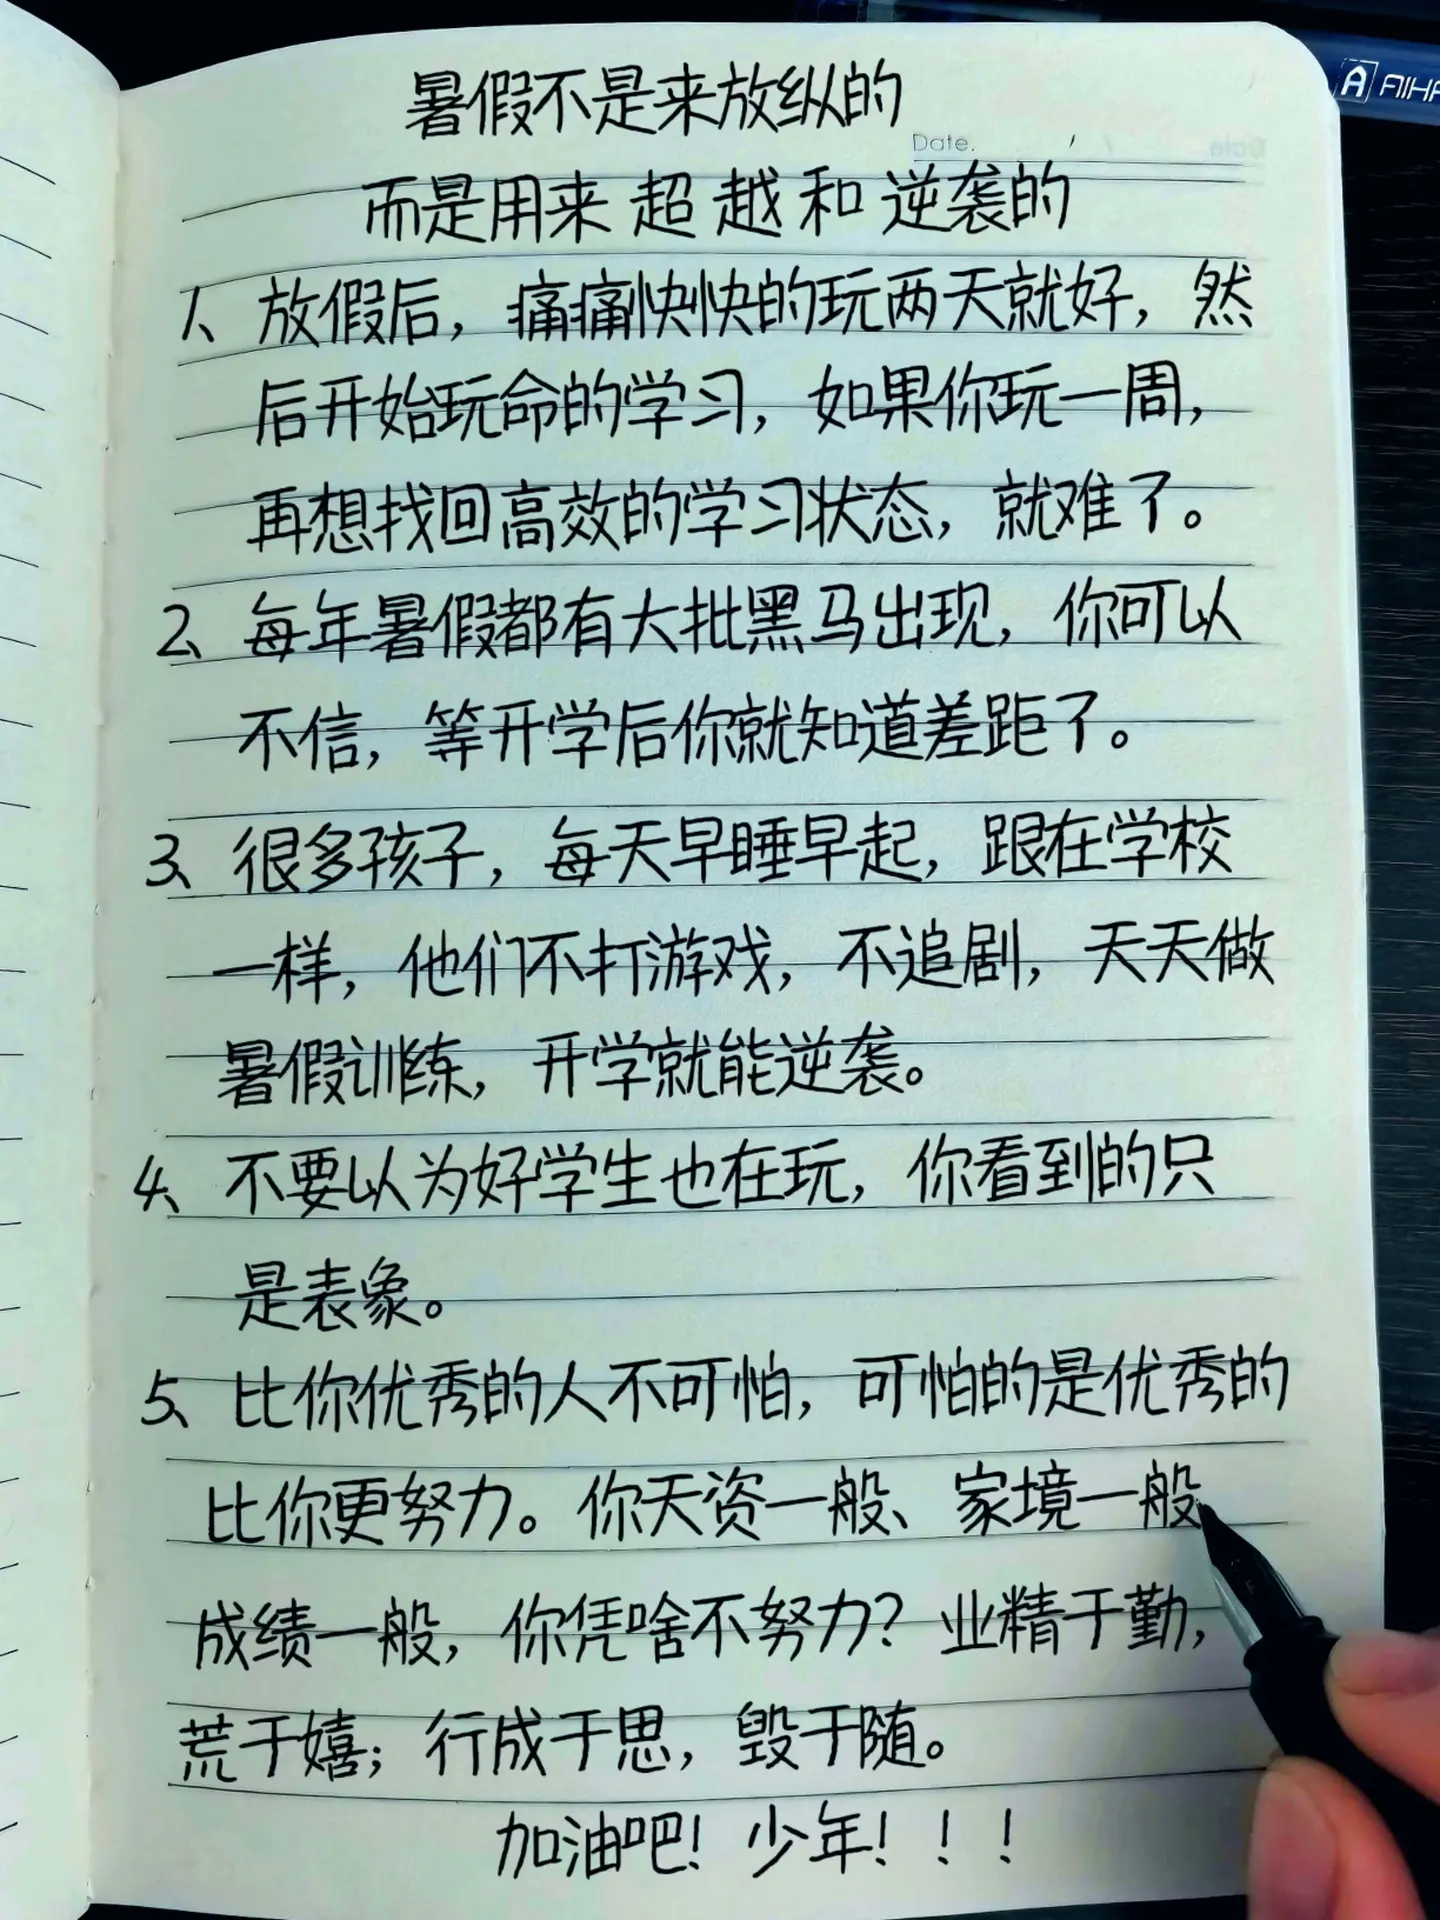 暑假不是来放纵的
Date.
而是用来超越和逆袭的
1、放假后，痛痛快快的玩两天就好，然
后开始玩命的学习，如果你玩一周，
再想找回高效的学习状态，就难了。
2、每年暑假都有大批黑马出现，你可以
不信，等开学后你就知道差距了。
3、很多孩子，每天早睡早起，跟在学校
一样，他们不打游戏，不追剧，天天做
暑假训练，开学就能逆袭。
4、不要以为好学生也在玩，你看到的只
是表象。
5、比你优秀的人不可怕，可怕的是优秀的
比你更努力。你天资一般、家境一般
成绩一般，你凭啥不努力？业精于勤，
荒于嬉；行成于思，毁于随。
加油吧！少年！！！